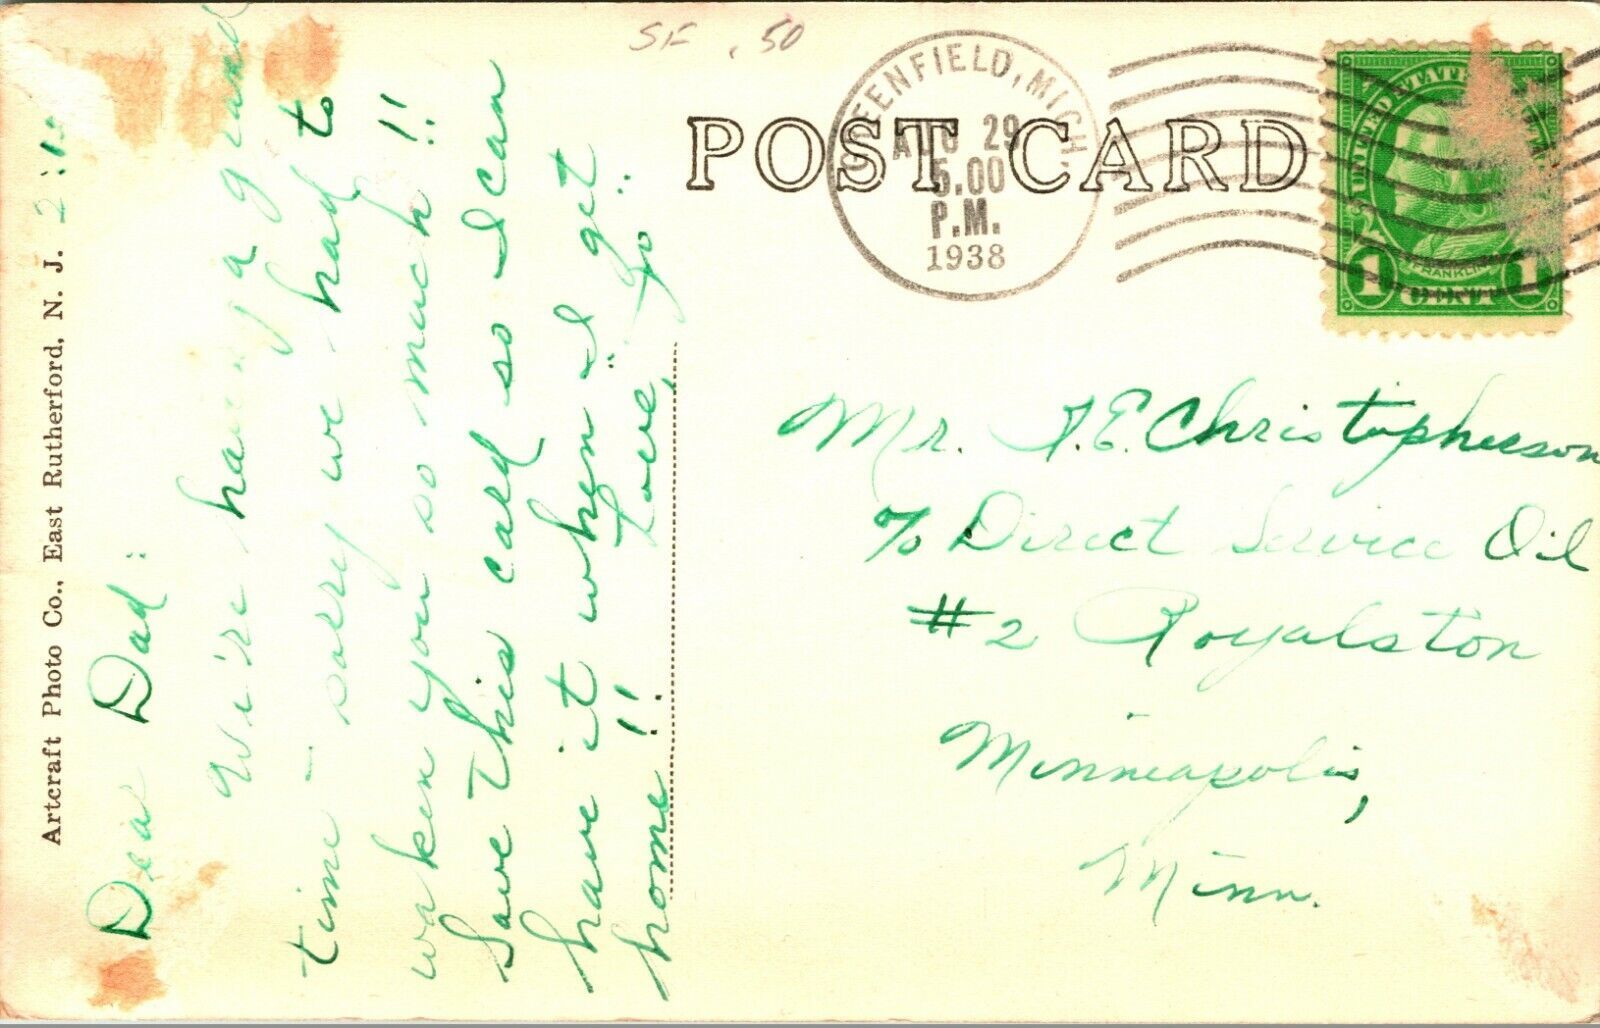 SF .50
POST CARD
GREENFIELD, MICH.
AUG 29
5.00
P.M.
1938
UNITED STATES
FRANKLIN
1 CENT 1
Artcraft Photo Co., East Rutherford, N. J.
Dear Dad:
We're having a grand
time - sorry we had to
waken you so much!!
Save this card so I can
have it when I get
home!! Love, "Jo"
Mr. F.E. Christopherson
c/o Direct Service Oil
#2 Royalston
Minneapolis,
Minn.